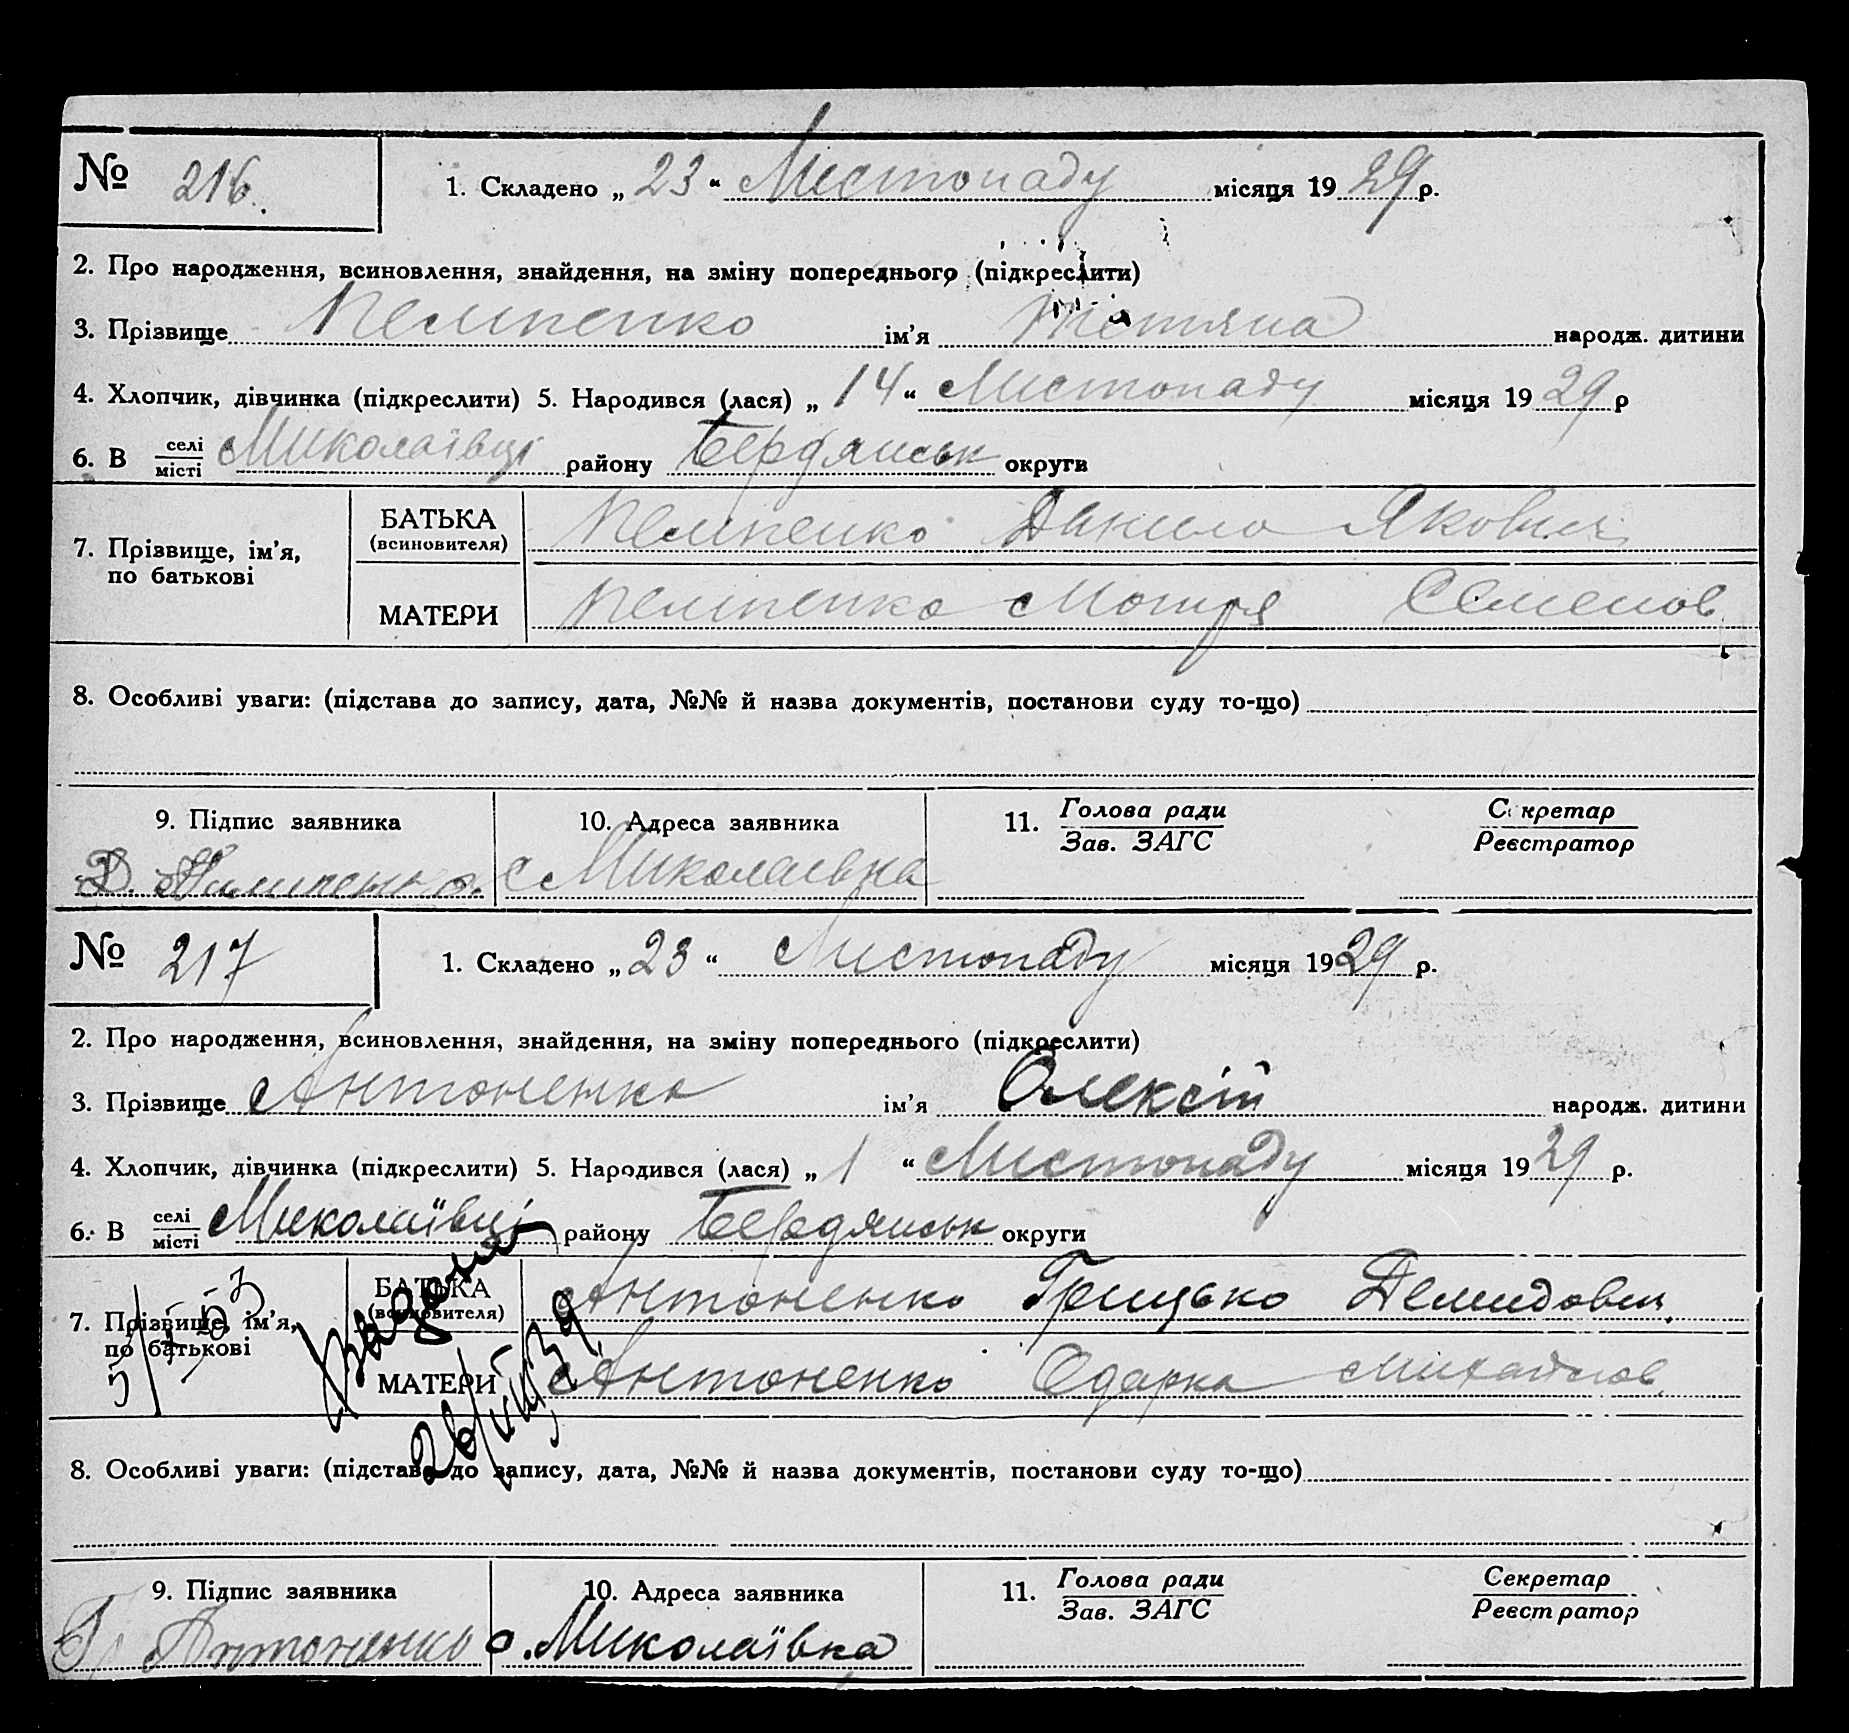 № 216. 1. Складено „ 23 “ Листопаду місяця 19 29 р.
2. Про народження, всиновлення, знайдення, на зміну попереднього (підкреслити)
3. Прізвище ім’я Тетяна народж. дитини
4. Хлопчик, дівчинка (підкреслити) 5. Народився (лася) „ 14 “ Листопаду місяця 19 29 р
6. В селі місті Миколаївці району Бердянськ округи
7. Прізвище, ім’я, по батькові БАТЬКА (всиновителя) Данило Якович
МАТЕРИ Мотря Семенов
8. Особливі уваги: (підстава до запису, дата, №№ й назва документів, постанови суду то-що)
9. Підпис заявника 10. Адреса заявника 11. Голова ради Зав. ЗАГС Секретар Реєстратор
Д. с Миколаевка
№ 217 1. Складено „ 23 “ Листопаду місяця 19 29 р.
2. Про народження, всиновлення, знайдення, на зміну попереднього (підкреслити)
3. Прізвище Антоненко ім’я Олексій народж. дитини
4. Хлопчик, дівчинка (підкреслити) 5. Народився (лася) „ 1 “ Листопаду місяця 19 29 р.
6. В селі місті Миколаївці району Бердянськ округи
7. Прізвище, ім’я, по батькові БАТЬКА (всиновителя) Антоненко Грицько Демидович
МАТЕРИ Антоненко Одарка Михайлов.
8. Особливі уваги: (підстава до запису, дата, №№ й назва документів, постанови суду то-що)
9. Підпис заявника 10. Адреса заявника 11. Голова ради Зав. ЗАГС Секретар Реєстратор
Гр Антоненко с. Миколаївка